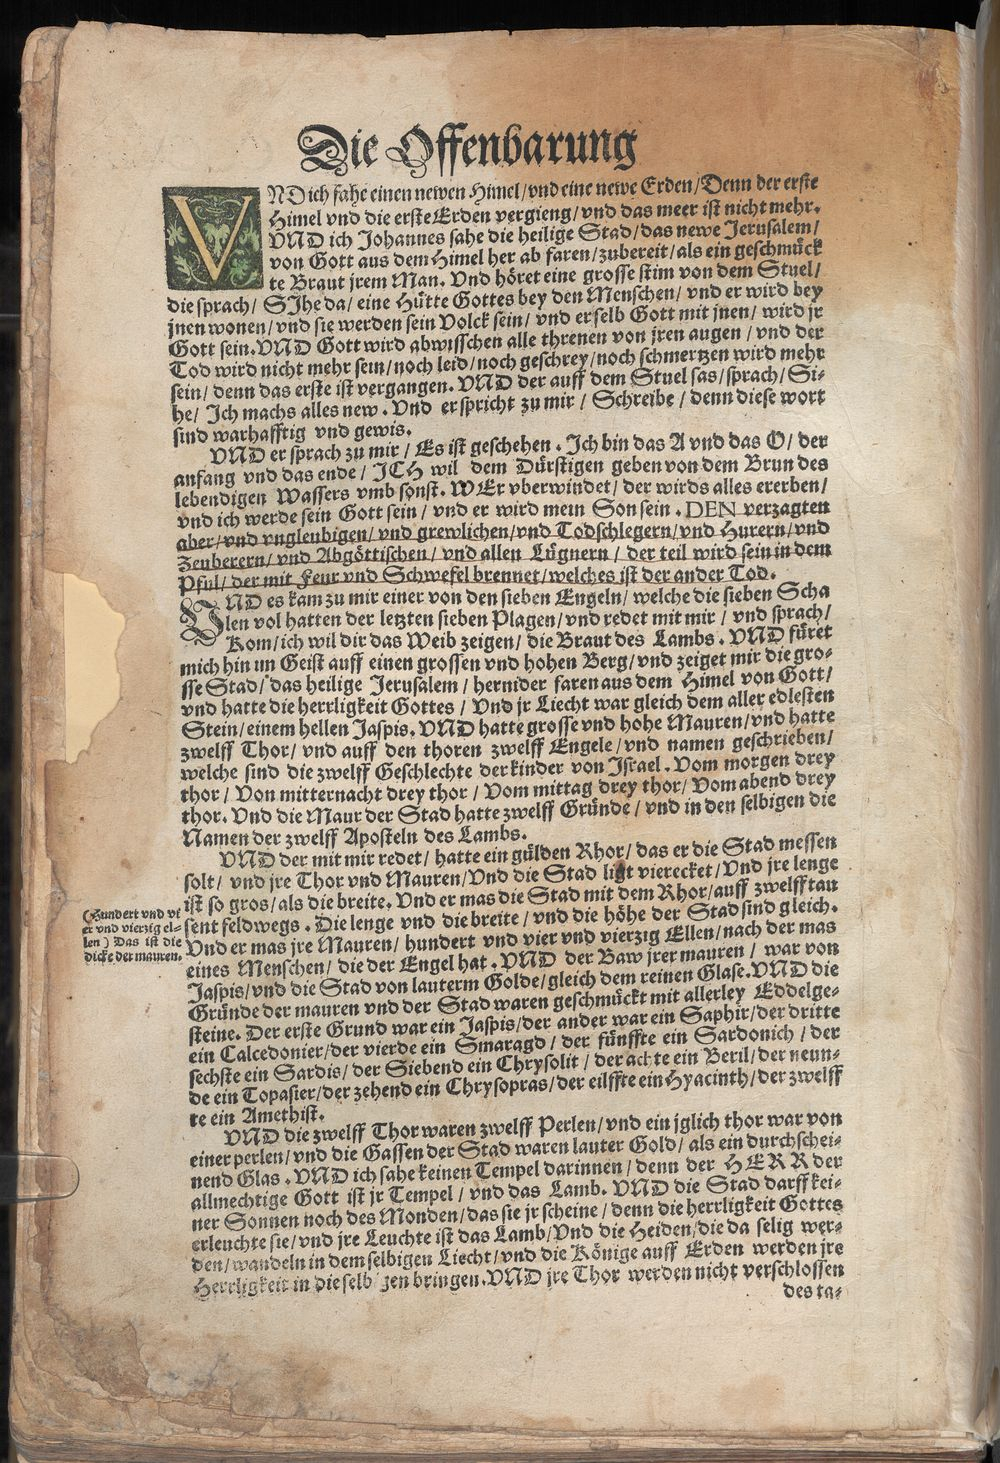 Die Offenbarung
VND ich sahe einen newen Himel/vnd eine newe Erden/Denn der erste
Himel vnd die erste Erden vergieng/vnd das meer ist nicht mehr.
VND ich Johannes sahe die heilige Stad/das newe Jerusalem/
von Gott aus dem Himel her ab faren/zubereit/als ein geschmückt
te Braut jrem Man. Vnd höret eine grosse stim von dem Stuel/
die sprach/ SIhe da/ eine Hütte Gottes bey den Menschen/ vnd er wird bey
jnen wonen/vnd sie werden sein Volck sein/ vnd er selb Gott mit jnen/ wird jr
Gott sein. VND Gott wird abwisschen alle threnen von jren augen / vnd der
Tod wird nicht mehr sein/noch leid/noch geschrey/noch schmertzen wird mehr
sein/ denn das erste ist vergangen. VND der auff dem Stuel sas/sprach/ Si-
he/ Ich machs alles new. Vnd er spricht zu mir / Schreibe / denn diese wort
sind warhafftig vnd gewis.
VND er sprach zu mir / Es ist geschehen. Ich bin das A vnd das O/ der
anfang vnd das ende/ ICH wil dem Dürstigen geben von dem Brun des
lebendigen Wassers vmb sonst. WEr vberwindet/ der wirds alles ererben/
vnd ich werde sein Gott sein/ vnd er wird mein Son sein. DEN verzagten
aber/vnd vngleubigen/vnd grewlichen/vnd Todschlegern/vnd Hurern/vnd
Zeuberern/vnd Abgöttischen/ vnd allen Lügnern/ der teil wird sein in dem
Pful/ der mit Feur vnd Schwefel brennet/welches ist der ander Tod.
VND es kam zu mir einer von den sieben Engeln/ welche die sieben Scha
len vol hatten der letzten sieben Plagen/vnd redet mit mir / vnd sprach/
Kom/ich wil dir das Weib zeigen/ die Braut des Lambs. VND füret
mich hin im Geist auff einen grossen vnd hohen Berg/vnd zeiget mir die gro-
sse Stad/ das heilige Jerusalem / hernider faren aus dem Himel von Gott/
vnd hatte die herrligkeit Gottes / Vnd jr Liecht war gleich dem aller edlesten
Stein/einem hellen Jaspis. VND hatte grosse vnd hohe Mauren/vnd hatte
zwelff Thor/ vnd auff den thoren zwelff Engele/vnd namen geschrieben/
welche sind die zwelff Geschlechte der kinder von Israel. Vom morgen drey
thor / Von mitternacht drey thor / Vom mittag drey thor/ Vom abend drey
thor. Vnd die Maur der Stad hatte zwelff Gründe / vnd in den selbigen die
Namen der zwelff Aposteln des Lambs.
VND der mit mir redet/ hatte ein gülden Rhor/ das er die Stad messen
solt/ vnd jre Thor vnd Mauren/Vnd die Stad ligt vierecket/Vnd jre lenge
ist so gros/als die breite. Vnd er mas die Stad mit dem Rhor/auff zwelff tau
sent feldwegs. Die lenge vnd die breite/ vnd die höhe der Stad sind gleich.
Vnd er mas jre Mauren/ hundert vnd vier vnd vierzig Ellen/nach der mas
eines Menschen/ die der Engel hat. VND der Baw jrer mauren / war von
Jaspis/vnd die Stad von lauterm Golde/gleich dem reinen Glase. VND die
Gründe der mauren vnd der Stad waren geschmückt mit allerley Eddelge-
steine. Der erste Grund war ein Jaspis/der ander war ein Saphir/der dritte
ein Calcedonier/der vierde ein Smaragd / der fünffte ein Sardonich / der
sechste ein Sardis/ der Siebend ein Chrysolit / der achte ein Beril/der neun-
de ein Topasier/der zehend ein Chrysopras/der eilffte ein Hyacinth/der zwelff
te ein Amethist.
VND die zwelff Thor waren zwelff Perlen/vnd ein jglich thor war von
einer perlen/vnd die Gassen der Stad waren lauter Gold/ als ein durchschei-
nend Glas. VND ich sahe keinen Tempel darinnen/ denn der HERR der
allmechtige Gott ist jr Tempel / vnd das Lamb. VND die Stad darff kei-
ner Sonnen noch des Monden/das sie jr scheine / denn die herrligkeit Gottes
erleuchte sie/vnd jre Leuchte ist das Lamb/Vnd die Heiden/die da selig wer-
den/wandeln in dem selbigen Liecht/vnd die Könige auff Erden werden jre
Herrligkeit in die selbigen bringen. VND jre Thor werden nicht verschlossen
des ta-
(Hundert vnd vi
er vnd vierzig el-
len) Das ist die
dicke der mauren.